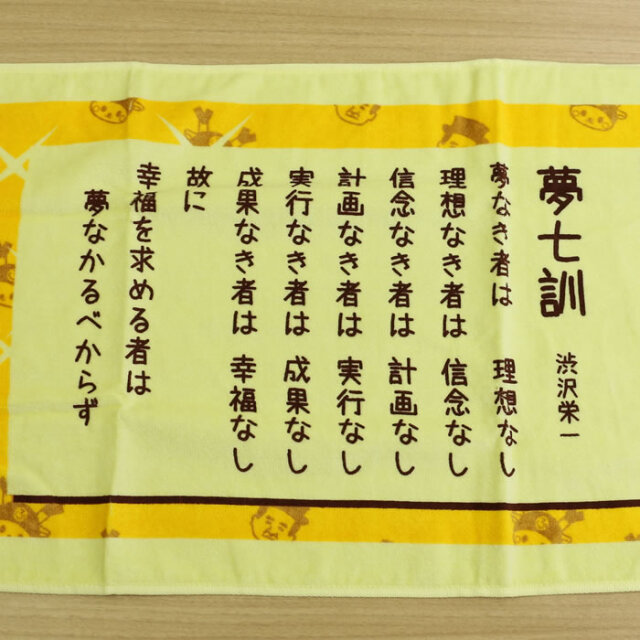 夢七訓
渋沢栄一
夢なき者は 理想なし
理想なき者は 信念なし
信念なき者は 計画なし
計画なき者は 実行なし
実行なき者は 成果なし
成果なき者は 幸福なし
故に
幸福を求める者は
夢なかるべからず